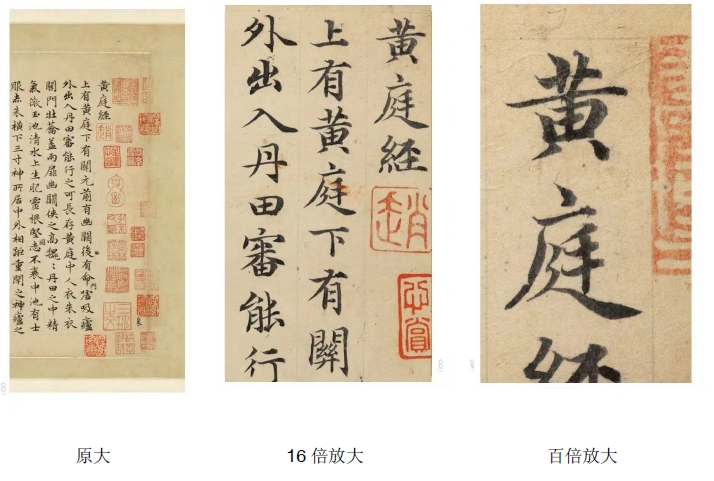 黃庭經
上有黃庭下有關元前有幽闕後有命門噓吸廬
外出入丹田審能行之可長存黃庭中人衣朱衣
關門壯蘥蓋兩扉幽闕俠之高巍:丹田之中精
氣微玉池清水上生肥靈根堅志不衰中池有士
服赤朱橫下三寸神所居中外相距重閉之神廬之
黃庭經
上有黃庭下有關
外出入丹田審能行
心賞
黃庭經
原大
16 倍放大
百倍放大